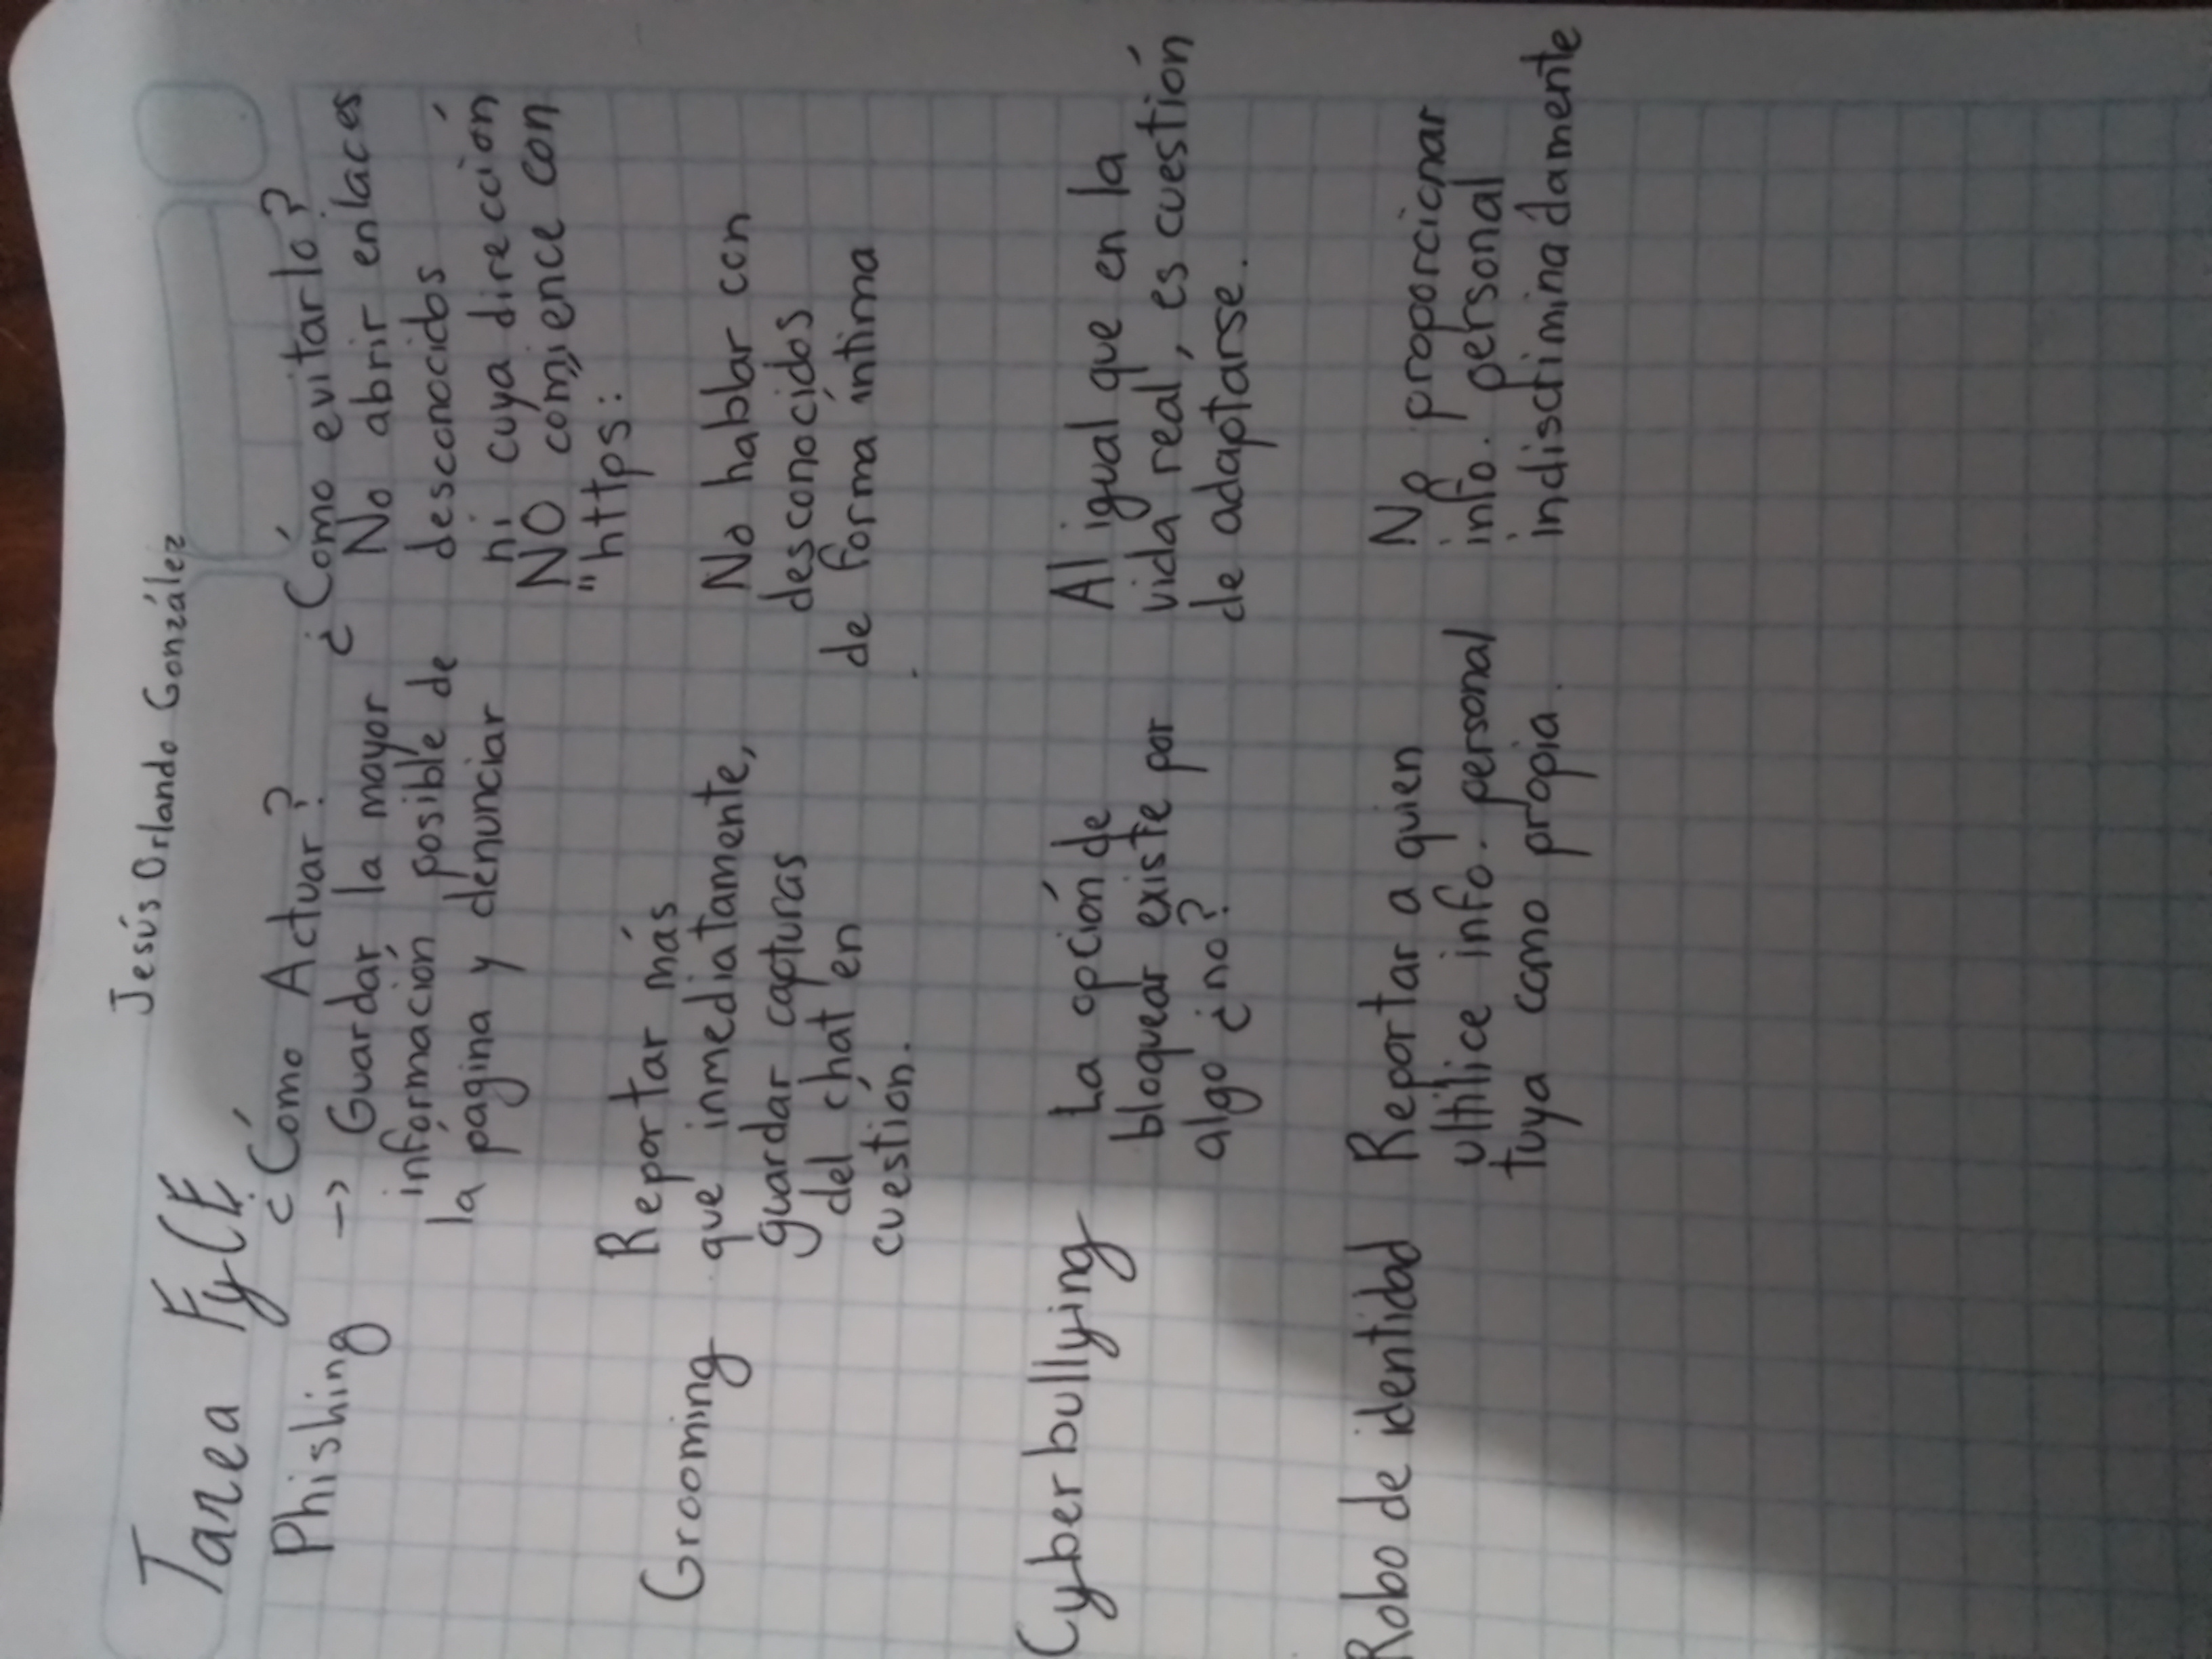 Jesús Orlando González
Tarea FyCE
¿Cómo Actuar?
¿Cómo evitarlo?
Phishing
-> Guardar la mayor
información posible de
la pagina y denunciar
No abrir enlaces
desconocidos
ni cuya dirección
NO comience con
"https:"
Grooming
Reportar más
que inmediatamente,
guardar capturas
del chat en
cuestión.
No hablar con
desconocidos
de forma íntima
Cyberbullying
La opción de
bloquear existe por
algo ¿no?
Al igual que en la
vida real, es cuestión
de adaptarse.
Robo de identidad
Reportar a quien
utilice info. personal
tuya como propia.
No proporcionar
info. personal
indiscriminadamente